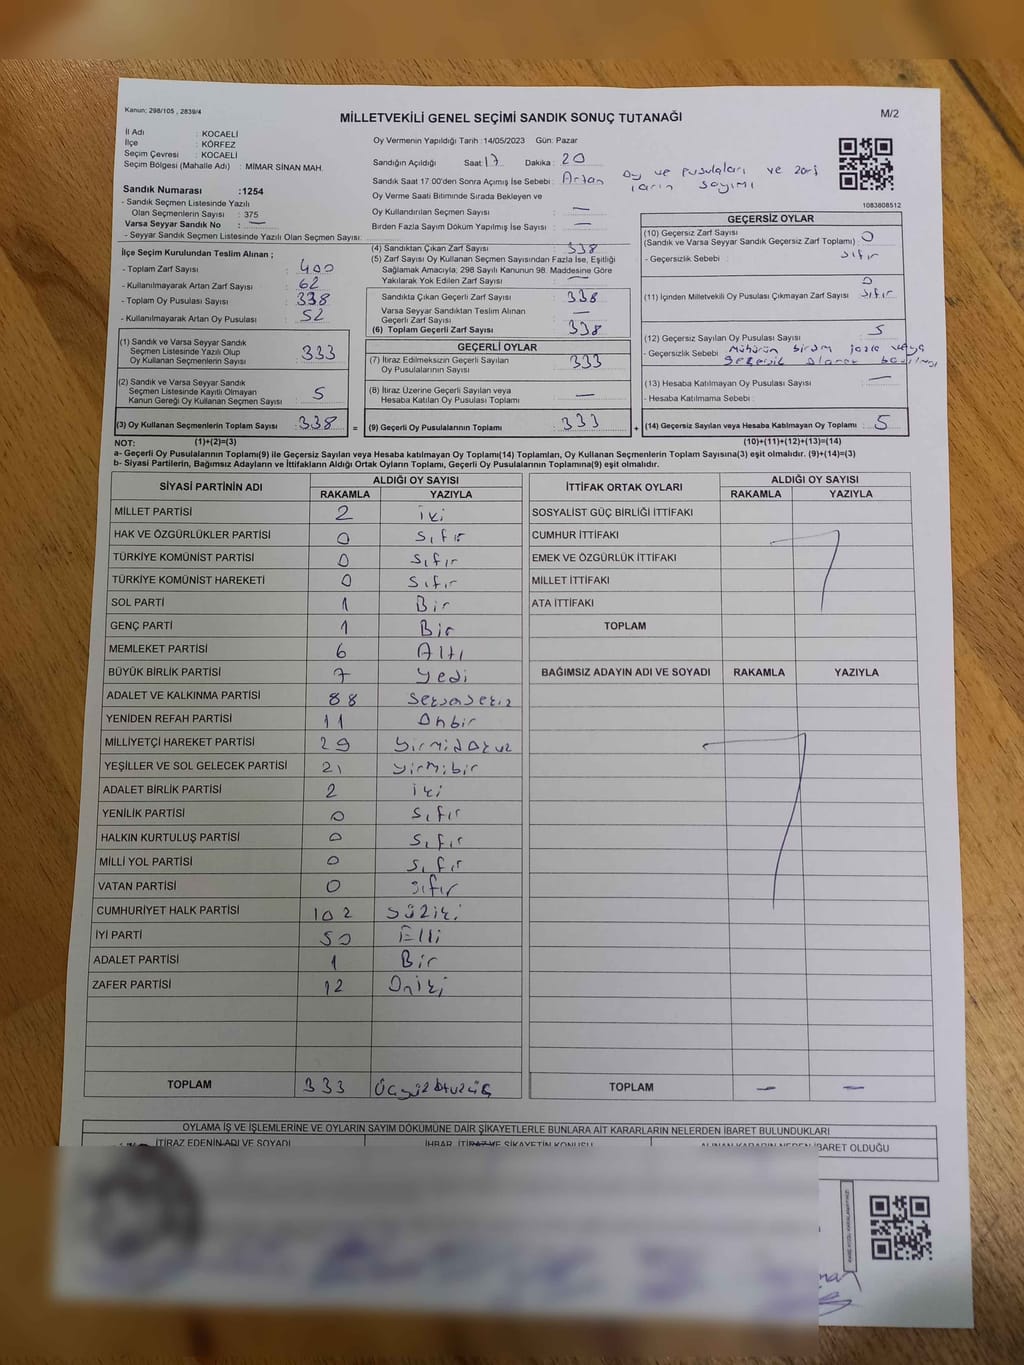 Kanun; 298/105 , 2839/4
MİLLETVEKİLİ GENEL SEÇİMİ SANDIK SONUÇ TUTANAĞI
M/2
İl Adı : KOCAELİ
İlçe : KÖRFEZ
Seçim Çevresi : KOCAELİ
Seçim Bölgesi (Mahalle Adı) : MİMAR SİNAN MAH.
Sandık Numarası :1254
- Sandık Seçmen Listesinde Yazılı
Olan Seçmenlerin Sayısı : 375
Varsa Seyyar Sandık No : —
- Seyyar Sandık Seçmen Listesinde Yazılı Olan Seçmen Sayısı:
Oy Vermenin Yapıldığı Tarih :14/05/2023 Gün: Pazar
Sandığın Açıldığı Saat: 17 Dakika : 20
Sandık Saat 17:00'den Sonra Açımış İse Sebebi : Artan oy ve pusulaları ve zarf
ların sayımı
Oy Verme Saati Bitiminde Sırada Bekleyen ve
Oy Kullandırılan Seçmen Sayısı : —
Birden Fazla Sayım Döküm Yapılmış İse Sayısı : —
1083808512
İlçe Seçim Kurulundan Teslim Alınan ;
- Toplam Zarf Sayısı : 400
- Kullanılmayarak Artan Zarf Sayısı : 62
- Toplam Oy Pusulası Sayısı : 338
- Kullanılmayarak Artan Oy Pusulası : 52
(1) Sandık ve Varsa Seyyar Sandık
Seçmen Listesinde Yazılı Olup
Oy Kullanan Seçmenlerin Sayısı : 333
(2) Sandık ve Varsa Seyyar Sandık
Seçmen Listesinde Kayıtlı Olmayan
Kanun Gereği Oy Kullanan Seçmen Sayısı : 5
(3) Oy Kullanan Seçmenlerin Toplam Sayısı : 338
(4) Sandıktan Çıkan Zarf Sayısı : 338
(5) Zarf Sayısı Oy Kullanan Seçmen Sayısından Fazla İse, Eşitliği
Sağlamak Amacıyla; 298 Sayılı Kanunun 98. Maddesine Göre
Yakılarak Yok Edilen Zarf Sayısı : —
Sandıkta Çıkan Geçerli Zarf Sayısı : 338
Varsa Seyyar Sandıktan Teslim Alınan
Geçerli Zarf Sayısı : —
(6) Toplam Geçerli Zarf Sayısı : 338
GEÇERLİ OYLAR
(7) İtiraz Edilmeksizin Geçerli Sayılan
Oy Pusulalarının Sayısı : 333
(8) İtiraz Üzerine Geçerli Sayılan veya
Hesaba Katılan Oy Pusulası Toplamı : —
= (9) Geçerli Oy Pusulalarının Toplamı : 333
GEÇERSİZ OYLAR
(10) Geçersiz Zarf Sayısı : 0
(Sandık ve Varsa Seyyar Sandık Geçersiz Zarf Toplamı)
- Geçersizlik Sebebi : sıfır
0
(11) İçinden Milletvekili Oy Pusulası Çıkmayan Zarf Sayısı : sıfır
(12) Geçersiz Sayılan Oy Pusulası Sayısı : 5
- Geçersizlik Sebebi : Mühürün birden fazla veya
(13) Hesaba Katılmayan Oy Pusulası Sayısı : —
- Hesaba Katılmama Sebebi :
+ (14) Geçersiz Sayılan veya Hesaba Katılmayan Oy Toplamı : 5
NOT: (1)+(2)=(3) (10)+(11)+(12)+(13)=(14)
a- Geçerli Oy Pusulalarının Toplamı(9) ile Geçersiz Sayılan veya Hesaba katılmayan Oy Toplamı(14) Toplamları, Oy Kullanan Seçmenlerin Toplam Sayısına(3) eşit olmalıdır. (9)+(14)=(3)
b- Siyasi Partilerin, Bağımsız Adayların ve İttifakların Aldığı Ortak Oyların Toplamı, Geçerli Oy Pusulalarının Toplamına(9) eşit olmalıdır.
SİYASİ PARTİNİN ADI ALDIĞI OY SAYISI
RAKAMLA YAZIYLA
MİLLET PARTİSİ 2 iki
HAK VE ÖZGÜRLÜKLER PARTİSİ 0 sıfır
TÜRKİYE KOMÜNİST PARTİSİ 0 sıfır
TÜRKİYE KOMÜNİST HAREKETİ 0 sıfır
SOL PARTİ 1 Bir
GENÇ PARTİ 1 Bir
MEMLEKET PARTİSİ 6 Altı
BÜYÜK BİRLİK PARTİSİ 7 yedi
ADALET VE KALKINMA PARTİSİ 88 seksensekiz
YENİDEN REFAH PARTİSİ 11 onbir
MİLLİYETÇİ HAREKET PARTİSİ 29 yirmidokuz
YEŞİLLER VE SOL GELECEK PARTİSİ 21 yirmibir
ADALET BİRLİK PARTİSİ 2 iki
YENİLİK PARTİSİ 0 sıfır
HALKIN KURTULUŞ PARTİSİ 0 sıfır
MİLLİ YOL PARTİSİ 0 sıfır
VATAN PARTİSİ 0 sıfır
CUMHURİYET HALK PARTİSİ 102 yüziki
İYİ PARTİ 50 Elli
ADALET PARTİSİ 1 Bir
ZAFER PARTİSİ 12 Oniki
TOPLAM 333 üçyüzotuzüç
İTTİFAK ORTAK OYLARI ALDIĞI OY SAYISI
RAKAMLA YAZIYLA
SOSYALİST GÜÇ BİRLİĞİ İTTİFAKI
CUMHUR İTTİFAKI
EMEK VE ÖZGÜRLÜK İTTİFAKI
MİLLET İTTİFAKI
ATA İTTİFAKI
TOPLAM
BAĞIMSIZ ADAYIN ADI VE SOYADI RAKAMLA YAZIYLA
TOPLAM — —
OYLAMA İŞ VE İŞLEMLERİNE VE OYLARIN SAYIM DÖKÜMÜNE DAİR ŞİKAYETLERLE BUNLARA AİT KARARLARIN NELERDEN İBARET BULUNDUKLARI
İTİRAZ EDENİN ADI VE SOYADI İHBAR, İTİRAZ VE ŞİKAYETİN KONUSU ALINAN KARARIN NEDEN İBARET OLDUĞU